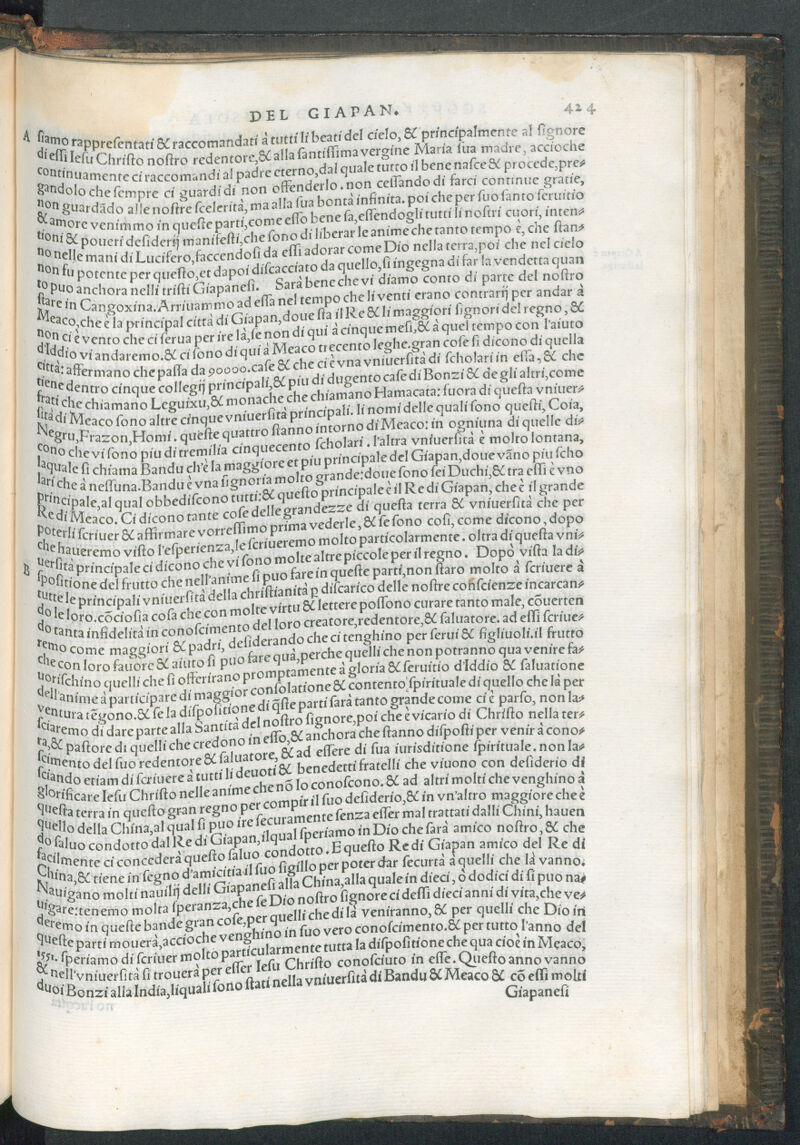 DEL GIAPAN.
424
A ſiamo rappreſentati & raccomandati à tutti li beati del cielo, & principalmente al ſignore
di eſſi Ieſu Chriſto noſtro redentore,& alla ſantiſſima vergine Maria ſua madre, accioche
continuamente ci raccomandi al padre eterno,dal quale tutto il bene naſce & procede,pre⸗
gandolo che ſempre ci guardi di non offenderlo. non ceſſando di farci continue gratie,
non guardãdo alle noſtre ſcelerità, ma alla ſua bontà infinita. poi che per ſuo ſanto ſeruitio
& amore venimmo in queſte parti,come eſſo bene ſa,eſſendogli tutti li noſtri cuori, inten⸗
tioni & poueri deſiderij manifeſti,che ſono di liberar le anime che tanto tempo è, che ſtan⸗
no nelle mani di Lucifero,faccendoſi da eſſi adorar come Dio nella terra,poi che nel cielo
non fu potente per queſto,et dapoi diſcacciato da quello,ſi ingegna di far la vendetta quan
to puo anchora nelli triſti Giapaneſi. Sarà bene che vi diamo conto di parte del noſtro
ſtare in Cangoxina.Arriuammo ad eſſa nel tempo che li venti erano contrarij per andar à
Meaco,che è la principal città di Giapan,doue ſta il Re & li maggiori ſignori del regno, &
non ci è vento che ci ſerua per ire là,ſe non di qui à cinque meſi,& à quel tempo con l'aiuto
d'Iddio vi andaremo.& ci ſono di qui à Meaco trecento leghe.gran coſe ſi dicono di quella
città: affermano che paſſa da 90000.caſe & che ci è vna vniuerſità di ſcholari in eſſa, & che
tiene dentro cinque collegij principali,& piu di dugento caſe di Bonzi & de gli altri,come
frati che chiamano Leguixu,& monache che chiamano Hamacata: fuora di queſta vniuer⸗
ſità di Meaco ſono altre cinque vniuerſità principali. li nomi delle quali ſono queſti, Coia,
Negru,Frazon,Homi. queſte quattro ſtanno intorno di Meaco: in ogniuna di quelle di⸗
cono che vi ſono piu di tremilia cinquecento ſcholari. l'altra vniuerſità è molto lontana,
laquale ſi chiama Bandu ch'è la maggiore et piu principale del Giapan,doue vãno piu ſcho
lari che à neſſuna.Bandu è vna ſignoria molto grande:doue ſono ſei Duchi,& tra eſſi è vno
principale,al qual obbediſcono tutti:& queſto principale è il Re di Giapan, che è il grande
Re di Meaco. Ci dicono tante coſe delle grandezze di queſta terra & vniuerſità che per
poterli ſcriuer & affirmare vorreſſimo prima vederle, & ſe ſono coſi, come dicono, dopo
che haueremo viſto l'eſperienza,le ſcriueremo molto particolarmente. oltra di queſta vni⸗
uerſità principale ci dicono che vi ſono molte altre piccole per il regno. Dopò viſta la di⸗
B ſpoſitione del frutto che nell'anime ſi puo fare in queſte parti,non ſtaro molto à ſcriuere à
tutte le principali vniuerſità della chriſtianità p diſcarico delle noſtre conſcienze incarcan⸗
do le loro.cõcioſia coſa che con molte virtu & lettere poſſono curare tanto male, cõuerten
do tanta infidelità in conoſcimento del loro creatore,redentore,& ſaluatore. ad eſſi ſcriue⸗
remo come maggiori & padri, deſiderando che ci tenghino per ſerui & figliuoli.il frutto
che con loro fauore & aiuto ſi puo fare quà,perche quelli che non potranno qua venire fa⸗
uoriſchino quelli che ſi offerirano promptamente à gloria & ſeruitio d'Iddio & ſaluatione
dell'anime à participare di maggior conſolatione & contento ſpirituale di quello che là per
ventura tẽgono.& ſe la diſpoſitione di q̃ſte parti ſarà tanto grande come ci è parſo, non la⸗
ſciaremo di dare parte alla Santità del noſtro ſignore,poi che è vicario di Chriſto nella ter⸗
ra,& paſtore di quelli che credono in eſſo,& anchora che ſtanno diſpoſti per venir à cono⸗
ſcimento del ſuo redentore & ſaluatore, & ad eſſere di ſua iurisditione ſpirituale. non la⸗
ſciando etiam di ſcriuere à tutti li deuoti & benedetti fratelli che viuono con deſiderio di
glorificare Ieſu Chriſto nelle anime che nõ lo conoſcono. & ad altri molti che venghino à
queſta terra in queſto gran regno per compir il ſuo deſiderio,& in vn'altro maggiore che è
quello della China,al qual ſi puo ire ſecuramente ſenza eſſer mal trattati dalli Chini, hauen
do ſaluo condotto dal Re di Giapan,ilqual ſperiamo in Dio che ſarà amico noſtro, & che
facilmente ci concederà queſto ſaluo condotto. E queſto Re di Giapan amico del Re di
China,& tiene in ſegno d'amicitia il ſuo ſigillo per poter dar ſecurtà à quelli che là vanno.
Nauigano molti nauilij delli Giapaneſi alla China,alla quale in dieci, ò dodici di ſi puo na⸗
uigare:tenemo molta ſperanza,che ſe Dio noſtro ſignore ci deſſi dieci anni di vita,che ve⸗
deremo in queſte bande gran coſe,per quelli che di là veniranno, & per quelli che Dio in
queſte parti mouerà,accioche venghino in ſuo vero conoſcimento.& per tutto l'anno del
1551. ſperiamo di ſcriuer molto particularmente tutta la diſpoſitione che qua cioè in Meaco,
& nell'vniuerſità ſi trouerà per eſſer Ieſu Chriſto conoſciuto in eſſe. Queſto anno vanno
duoi Bonzi alla India,liquali ſono ſtati nella vniuerſità di Bandu & Meaco & cõ eſſi molti
Giapaneſi